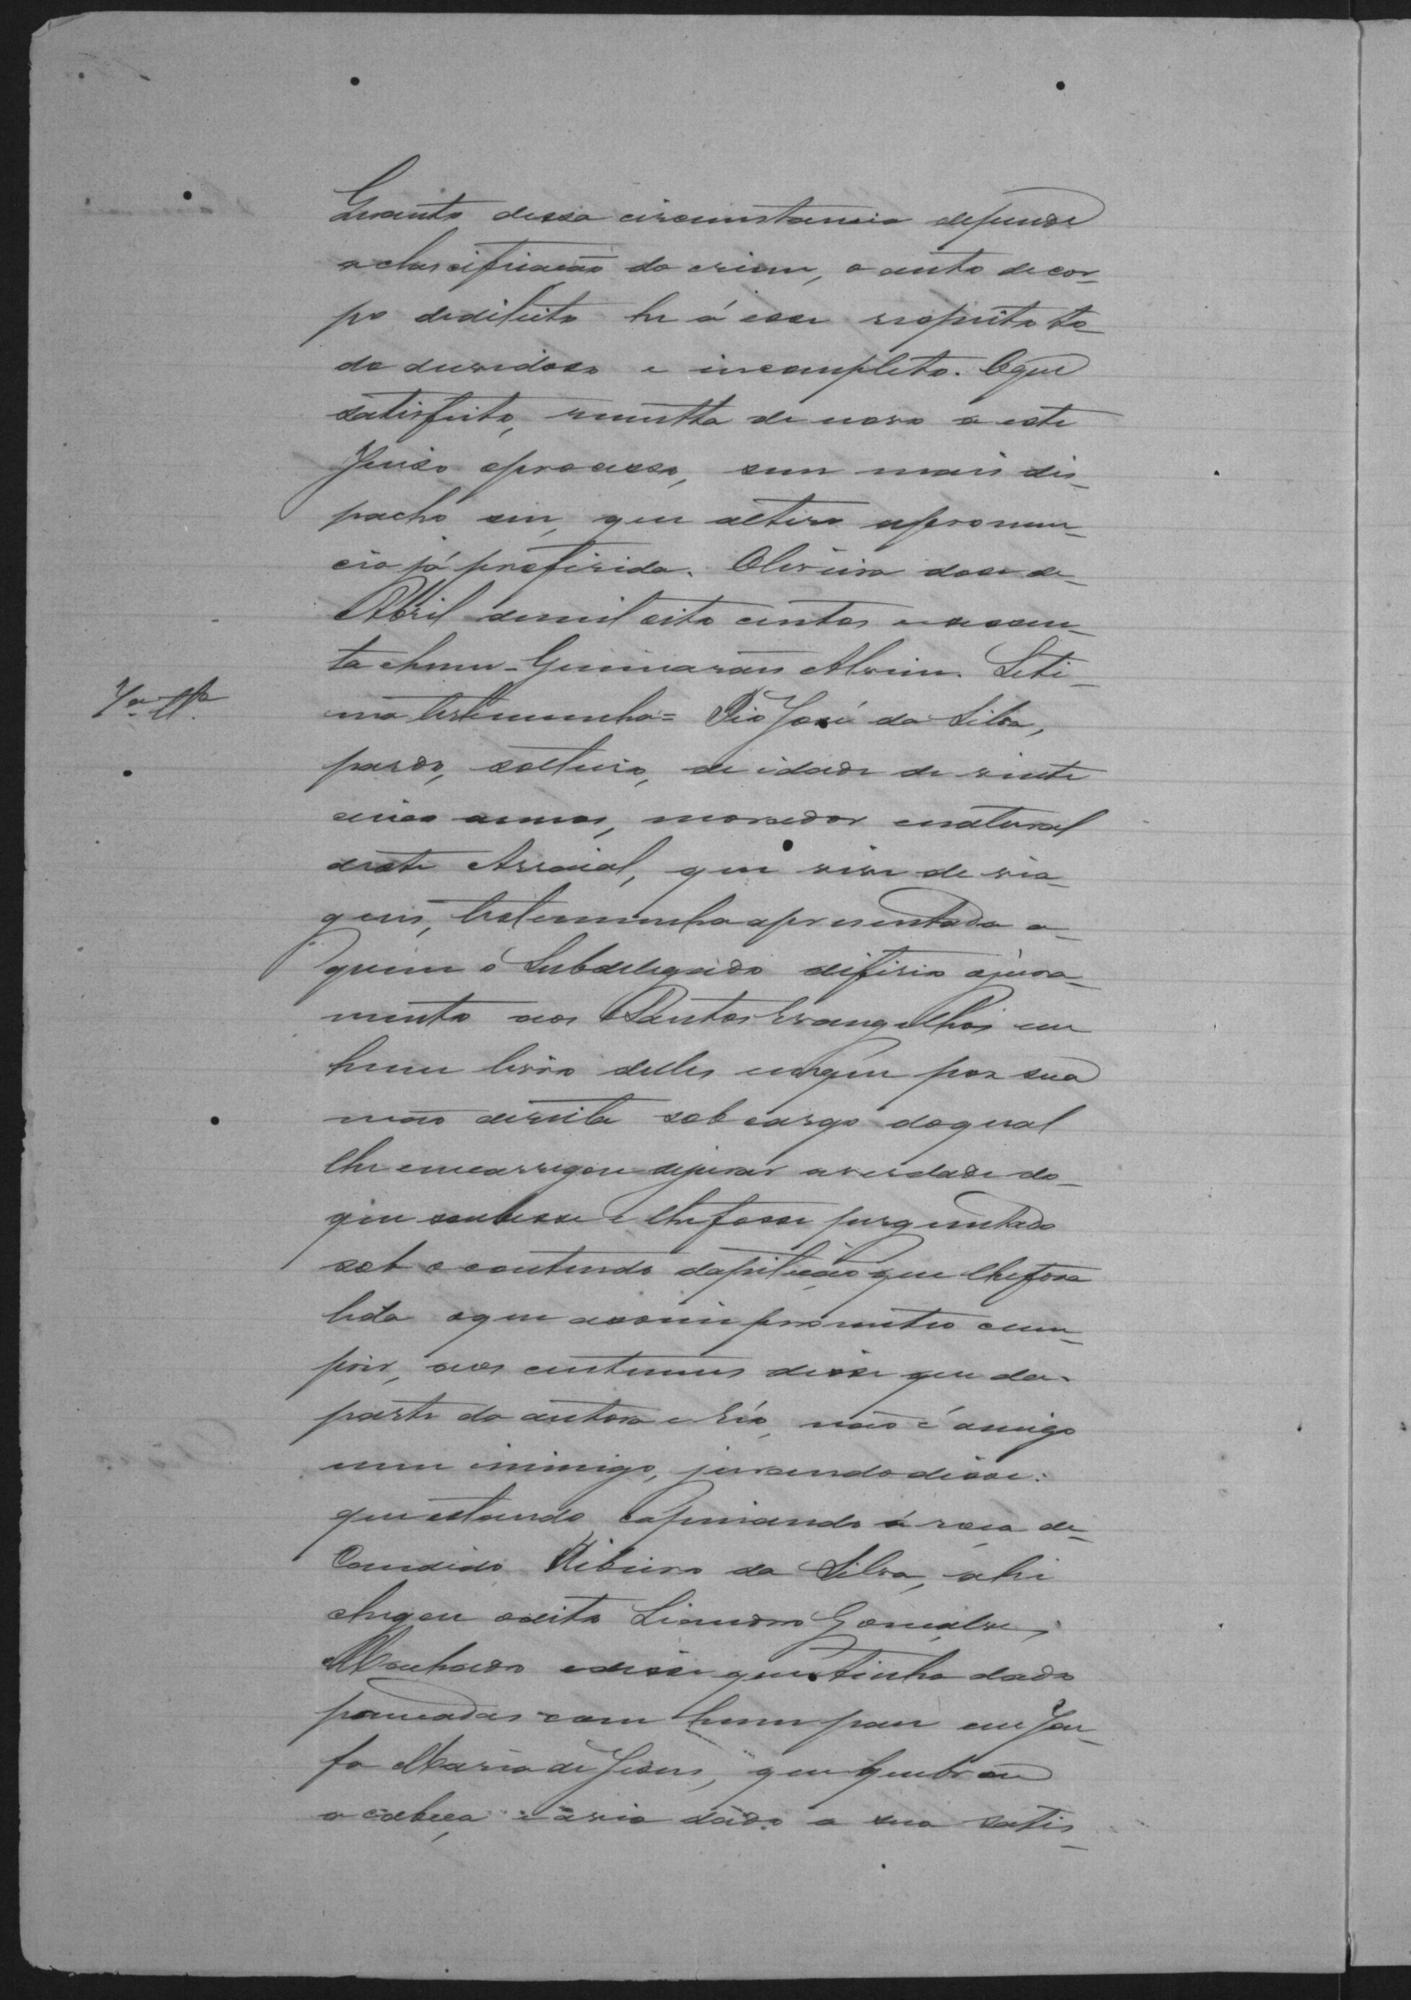 Quanto dessa circumstancia depende
a classificação do crime, o auto de cor-
po de delicto he á esse respeito to
do duvidoso e incompleto. O que
satisfeito, remetta de novo a este
Juiso o processo, sem mais des-
pacho seu, que altere a pronun-
cia já proferida. Oliveira dose de
Abril de mil oito centos e secen-
ta e hum - Guimarães Alvim. Seti-
7ª Tª
ma testemunha = Pio José da Silva,
pardo, solteiro, de idade de vinte
cinco annos, morador e natural
deste Arraial, que vive de via-
gens, testemunha apresentada a
quem o Subdelegado difirio o jura-
mento aos Santos Evangelhos em
hum livro delles em que por sua
mão direita sob cargo do qual
lhe encarregou de jurar a verdade do
que soubesse e lhe fosse perguntado
sob o contendo da petição que lhe fora
lida o que assim prometteo cum-
prir, aos custumes disse que da
parte da autora e réo, não é amigo
nem inimigo, jurando disse:
que estando capinando á roça de
Candido Ribeiro da Silva, ahi
chegou o dito Lisandro Gonçalves
Machado e disse que tinha dado
pancadas com hum pau em Jou-
fa Maria de Jesus, que quebrou
a cabeça e avia dado a sua satis-